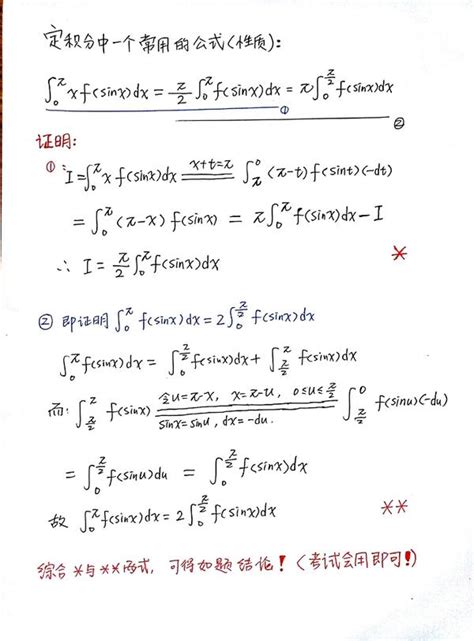 定积分中一个常用的公式(性质):
∫₀^π x f(sinx)dx = π/2 ∫₀^π f(sinx)dx = π∫₀^(π/2) f(sinx)dx
① ②
证明:
①: I=∫₀^π x f(sinx)dx =(x+t=π)= ∫_π^0 (π-t) f(sint)(-dt)
= ∫₀^π (π-x) f(sinx) = π∫₀^π f(sinx)dx - I
∴ I = π/2 ∫₀^π f(sinx)dx *
② 即证明 ∫₀^π f(sinx)dx = 2∫₀^(π/2) f(sinx)dx
∫₀^π f(sinx)dx = ∫₀^(π/2) f(sinx)dx + ∫_(π/2)^π f(sinx)dx
而: ∫_(π/2)^π f(sinx) =(令u=π-x, x=π-u, 0≤u≤π/2; sinx=sinu, dx=-du.)= ∫_(π/2)^0 f(sinu)(-du)
= ∫₀^(π/2) f(sinu)du = ∫₀^(π/2) f(sinx)dx
故 ∫₀^π f(sinx)dx = 2∫₀^(π/2) f(sinx)dx **
综合*与**两式, 可得如题结论! (考试会用即可!)